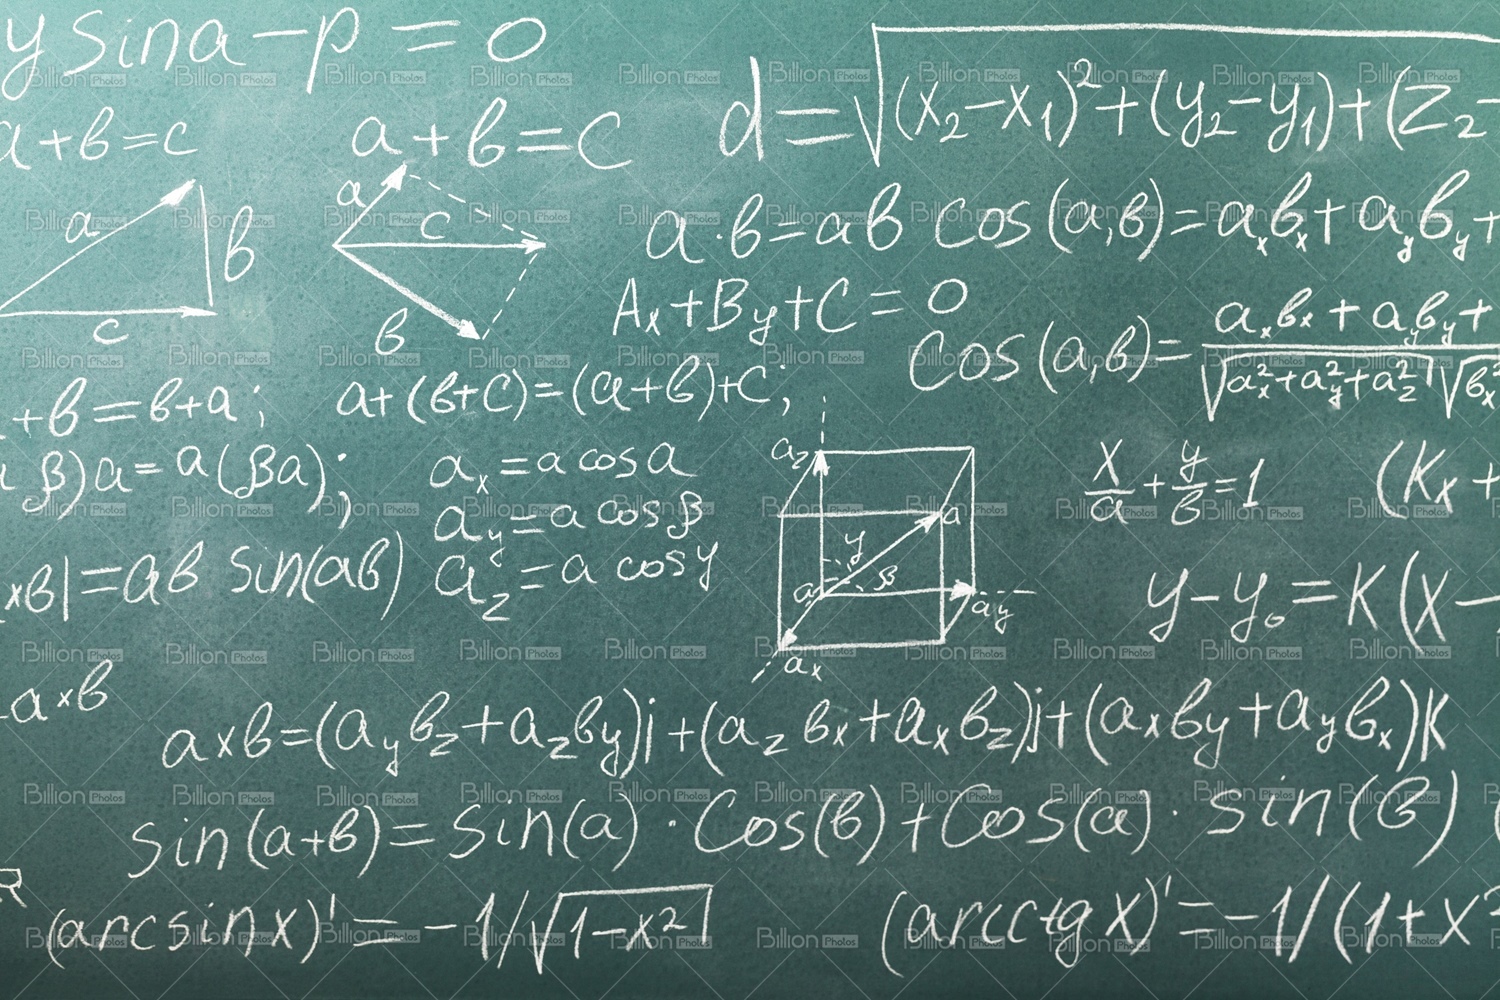 y sina - p = 0
a + b = c
a + b = c
d = √(x₂ - x₁)² + (y₂ - y₁) + (z₂ -
a
b
c
a
c
b
a · b = ab cos (a, b) = aₓbₓ + a_yb_y +
Ax + By + C = 0
cos (a, b) = aₓbₓ + a_yb_y + / √aₓ² + a_y² + a_z² √bₓ²
+ b = b + a;
a + (b + c) = (a + b) + c;
β)a = a(βa);
aₓ = a cos a
a_y = a cos β
a_z = a cos y
a_z
a
y
β
a
a_y
aₓ
x/a + y/b = 1
(Kx +
xb| = ab sin(ab)
y - y₀ = K (x -
- a x b
a x b = (a_yb_z + a_zb_y)i + (a_z bₓ + aₓb_z)j + (aₓb_y + a_yb_x)K
sin(a + b) = sin(a) · cos(b) + cos(a) · sin(b)
(arcsin x)' = - 1/√1 - x²
(arcctg x)' = - 1/(1 + x²
Billion Photos